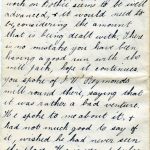 work in Bothie seems to be well
advanced, & it would need to
by considering the amount
that is being dealt with. There
is no mistake you have been
having a good run with the
mill path, hope it continues
you spoke of J. W. Reynolds
mill round there, saying that
it was rather a bad venture.
He spoke to me about it, &
had not much good to say of
it, wished he had never seen